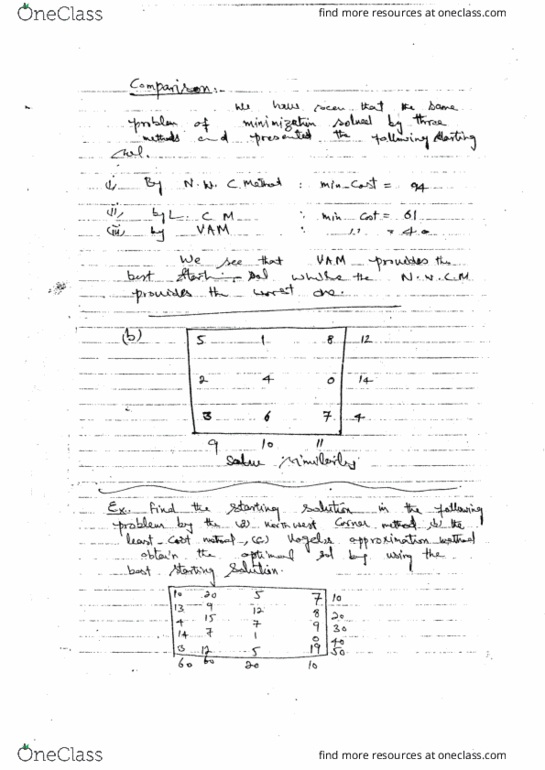 OneClass
find more resources at oneclass.com
Comparison:-
We have seen that the same
problem of minimization solved by three
methods and presented the following starting
(i) By N.W. C. Method : min-Cost = 94
(ii) by L. C M : min Cost = 61
(iii) by VAM : " = 40
We see that VAM provides the
best start. sol while the N.W.C.M
provides the worst one.
(b) 5 1 8 12
2 4 0 14
3 6 7 4
9 10 11
Solve similarly
Ex. Find the starting solution in the following
problem by the (a) north west corner method (b) the
least-cost method, (c) Vogel's approximation method
obtain the optimal sol by using the
best starting solution.
10 20 5 7 10
13 9 12 8 20
4 15 7 9 30
14 7 1 0 40
3 12 5 19 50
60 60 20 10
OneClass
find more resources at oneclass.com